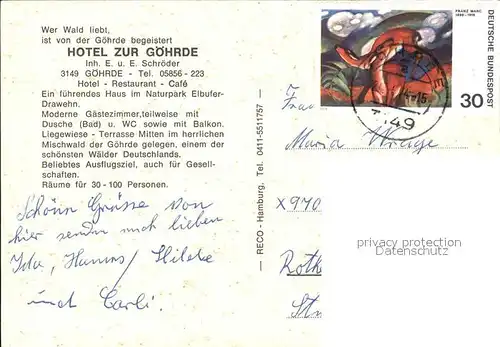 Wer Wald liebt,
ist von der Göhrde begeistert
HOTEL ZUR GÖHRDE
Inh. E. u. E. Schröder
3149 GÖHRDE - Tel. 05856 - 223
Hotel - Restaurant - Café
Ein führendes Haus im Naturpark Elbufer-
Drawehn.
Moderne Gästezimmer,teilweise mit
Dusche (Bad) u. WC sowie mit Balkon.
Liegewiese - Terrasse Mitten im herrlichen
Mischwald der Göhrde gelegen, einem der
schönsten Wälder Deutschlands.
Beliebtes Ausflugsziel, auch für Gesell-
schaften.
Räume für 30 - 100 Personen.
Schöne Grüsse von
hier senden euch lieben
Ida, Hanns/ Hilde
und Carli.
— RECO - Hamburg, Tel. 0411-5511757 —
FRANZ MARC
1880-1916
DEUTSCHE BUNDESPOST
30
3149
Frau
Maria Wrage
X970
Rotk
St
privacy protection
Datenschutz